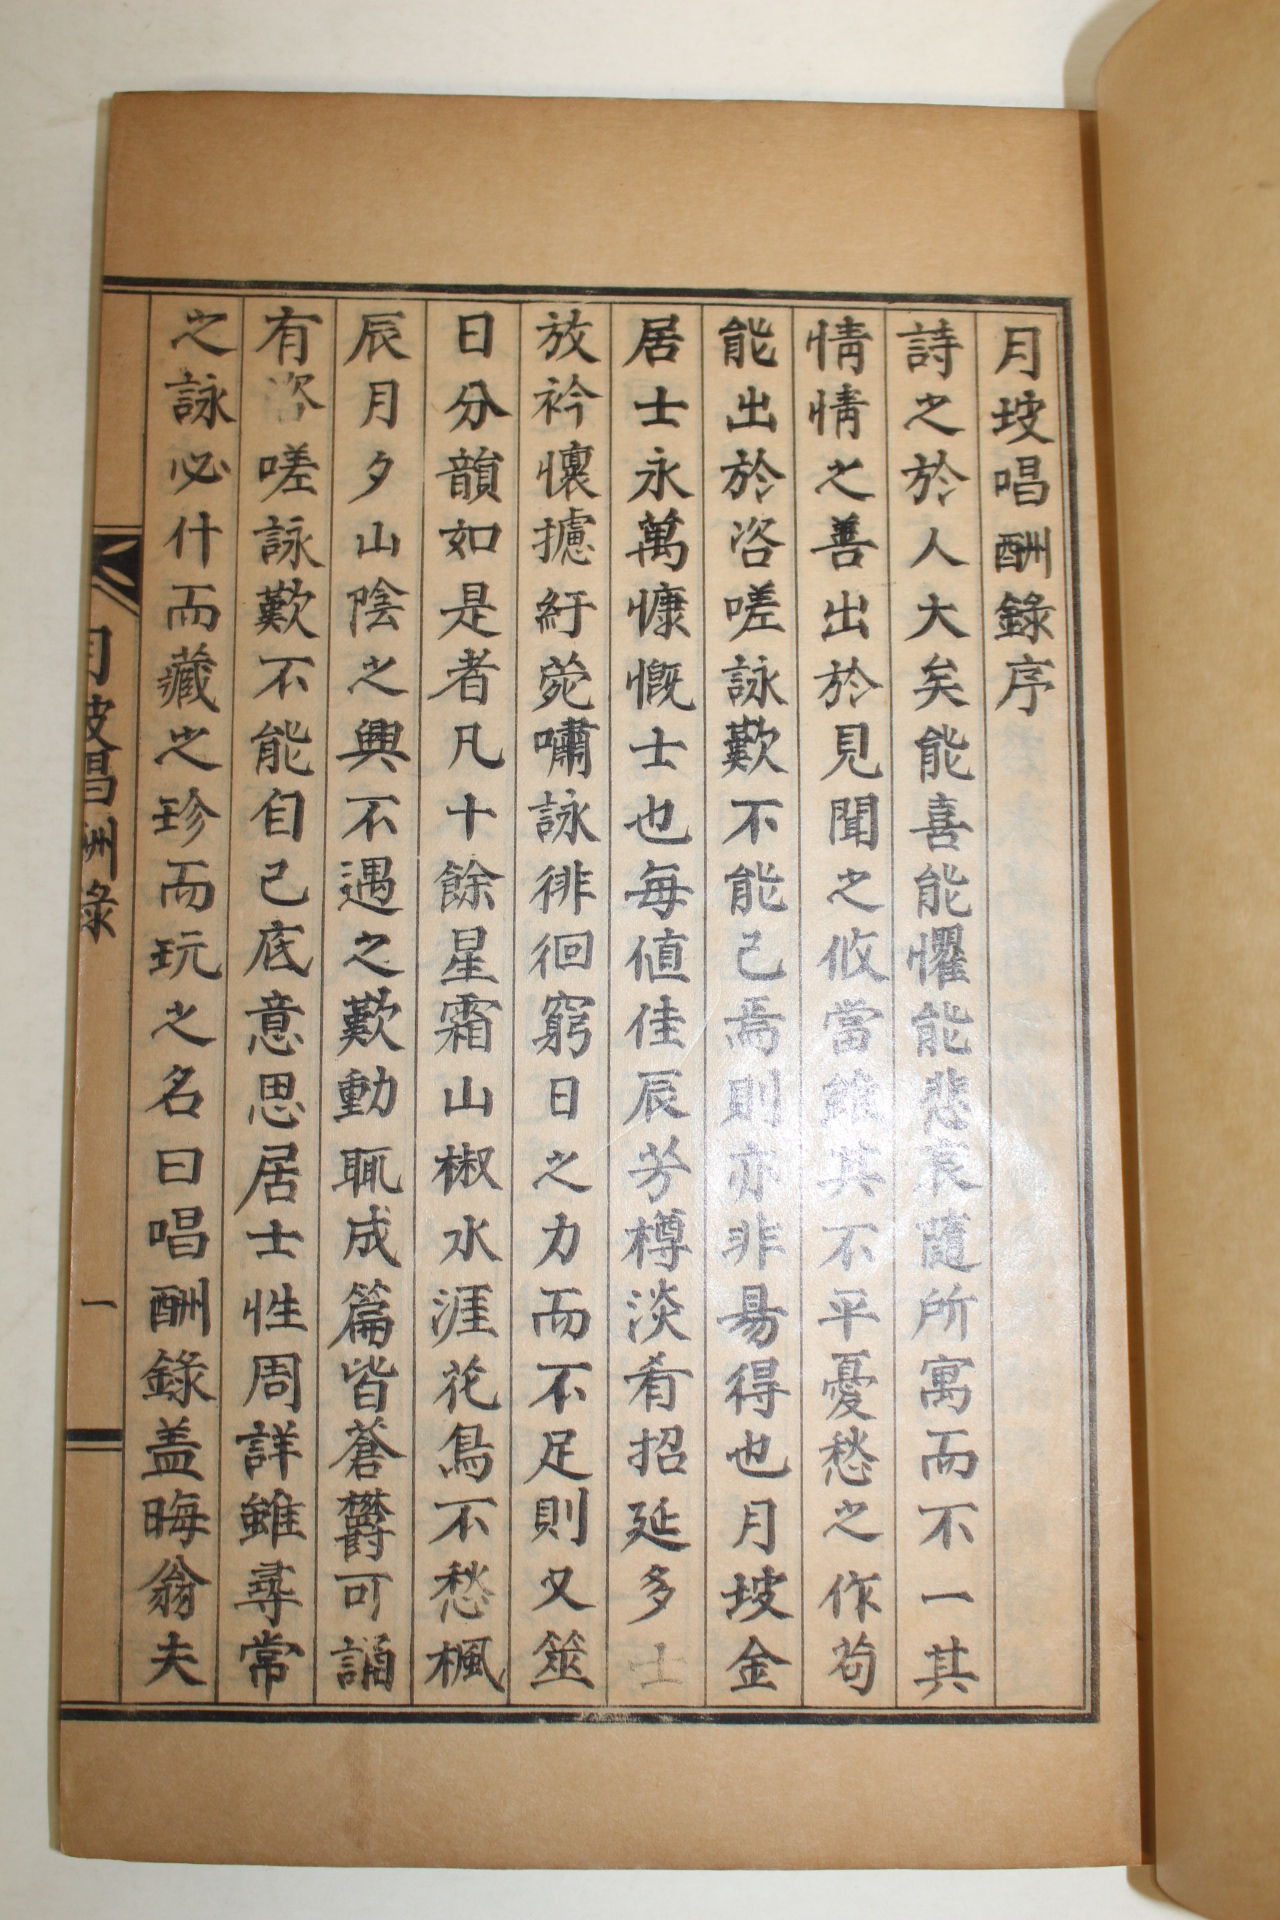 月坡唱酬錄序
詩之於人大矣能喜能懼能悲哀隨所寓而不一其
情情之善出於見聞之攸當雖其不平憂愁之作苟
能出於咨嗟詠歎不能己焉則亦非易得也月坡金
居士永萬慷慨士也每値佳辰芳樽淡肴招延多士
放衿懷攄紆菀嘯詠徘徊窮日之力而不足則又筮
日分韻如是者凡十餘星霜山椒水涯花鳥不愁楓
辰月夕山陰之興不遇之歎動輒成篇皆蒼欝可誦
有咨嗟詠歎不能自己底意思居士性周詳雖尋常
之詠必什而藏之珍而玩之名曰唱酬錄盖晦翁夫
月坡唱酬錄
一